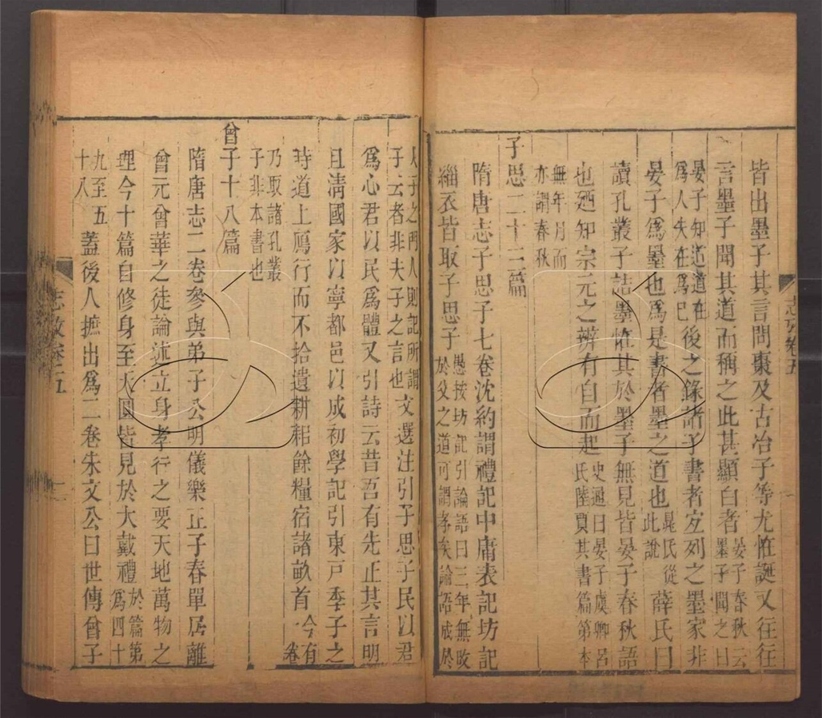 皆出墨子其言問棗及古冶子等尤怪誕又往往
言墨子聞其道而稱之此甚顯白者晏子春秋云墨子聞之曰
晏子知道道在爲人失在爲己後之錄諸子書者宜列之墨家非
晏子爲墨也爲是書者墨之道也晁氏從此說薛氏曰
讀孔叢子詰墨怪其於墨子無見皆晏子春秋語
也廼知宗元之辨有自而起史遷曰晏子虞卿呂氏陸賈其書篇第本
無年月而亦謂春秋
子思二十三篇
隋唐志子思子七卷沈約謂禮記中庸表記坊記
緇衣皆取子思子愚按坊記引論語曰三年無改於父之道可謂孝矣論語成於
夫子之門人則記所謂子云者非夫子之言也文選注引子思子民以君
爲心君以民爲體又引詩云昔吾有先正其言明
且淸國家以寧都邑以成初學記引東戸季子之
時道上鴈行而不拾遺耕耜餘糧宿諸畝首今有一卷
乃取諸孔叢子非本書也
曾子十八篇
隋唐志二卷參與弟子公明儀樂正子春單居離
曾元曾華之徒論述立身孝行之要天地萬物之
理今十篇自修身至天圓皆見於大戴禮於篇第爲四十
九至五十八蓋後人摭出爲二卷朱文公曰世傳曾子
志攷卷五
志攷卷五